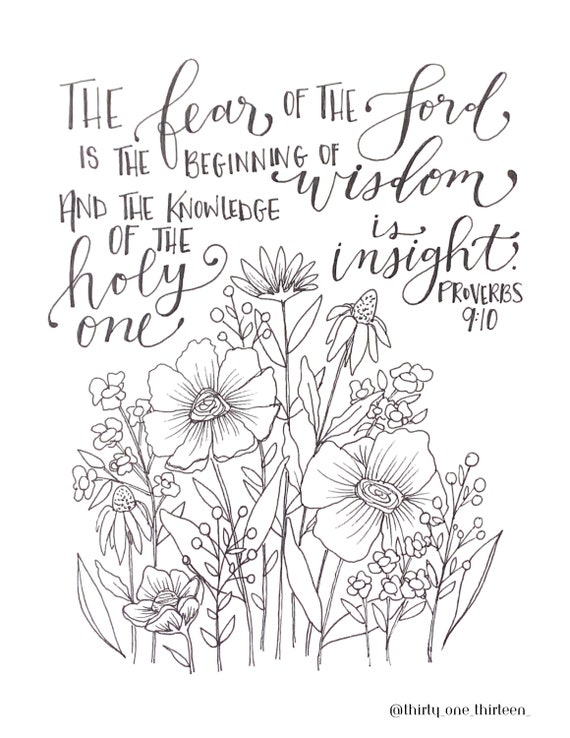 THE fear OF THE Lord
IS THE BEGINNING OF wisdom
AND THE KNOWLEDGE
OF THE
holy
one
is
insight.
PROVERBS
9:10
@thirty_one_thirteen_